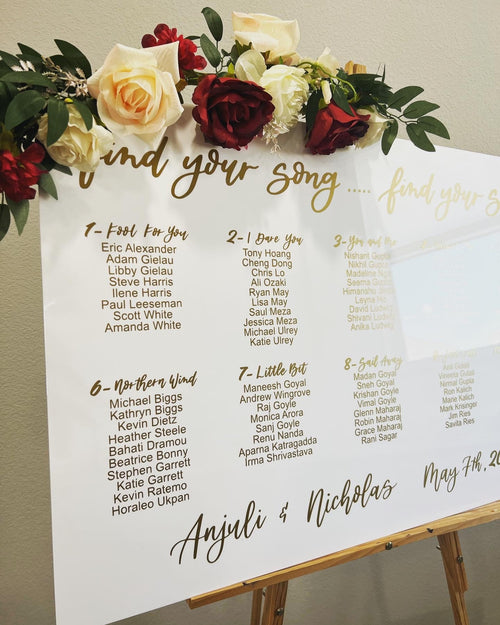 find your song ..... find your s
1- Fool For You
Eric Alexander
Adam Gielau
Libby Gielau
Steve Harris
Ilene Harris
Paul Leeseman
Scott White
Amanda White
2- I Dare You
Tony Hoang
Cheng Dong
Chris Lo
Ali Ozaki
Ryan May
Lisa May
Saul Meza
Jessica Meza
Michael Ulrey
Katie Ulrey
3- You and Me
Nishant Gupta
Nikhil Gupta
Madeline
Seema Gupta
Himanshu
Leyna
David
Shivani
Anika
6- Northern Wind
Michael Biggs
Kathryn Biggs
Kevin Dietz
Heather Steele
Bahati Dramou
Beatrice Bonny
Stephen Garrett
Katie Garrett
Kevin Ratemo
Horaleo Ukpan
7- Little Bit
Maneesh Goyal
Andrew Wingrove
Raj Goyle
Monica Arora
Sanj Goyle
Renu Nanda
Aparna Katragadda
Irma Shrivastava
8- Sail Away
Madan Goyal
Sneh Goyal
Krishan Goyle
Vimal Goyle
Glenn Maharaj
Robin Maharaj
Grace Maharaj
Rani Sagar
Gulati
Vineeta Gulati
Nirmal Gupta
Ron Kalich
Marie Kalich
Mark Krisinger
Jim Ries
Savita Ries
Anjuli & Nicholas
May 7th, 20